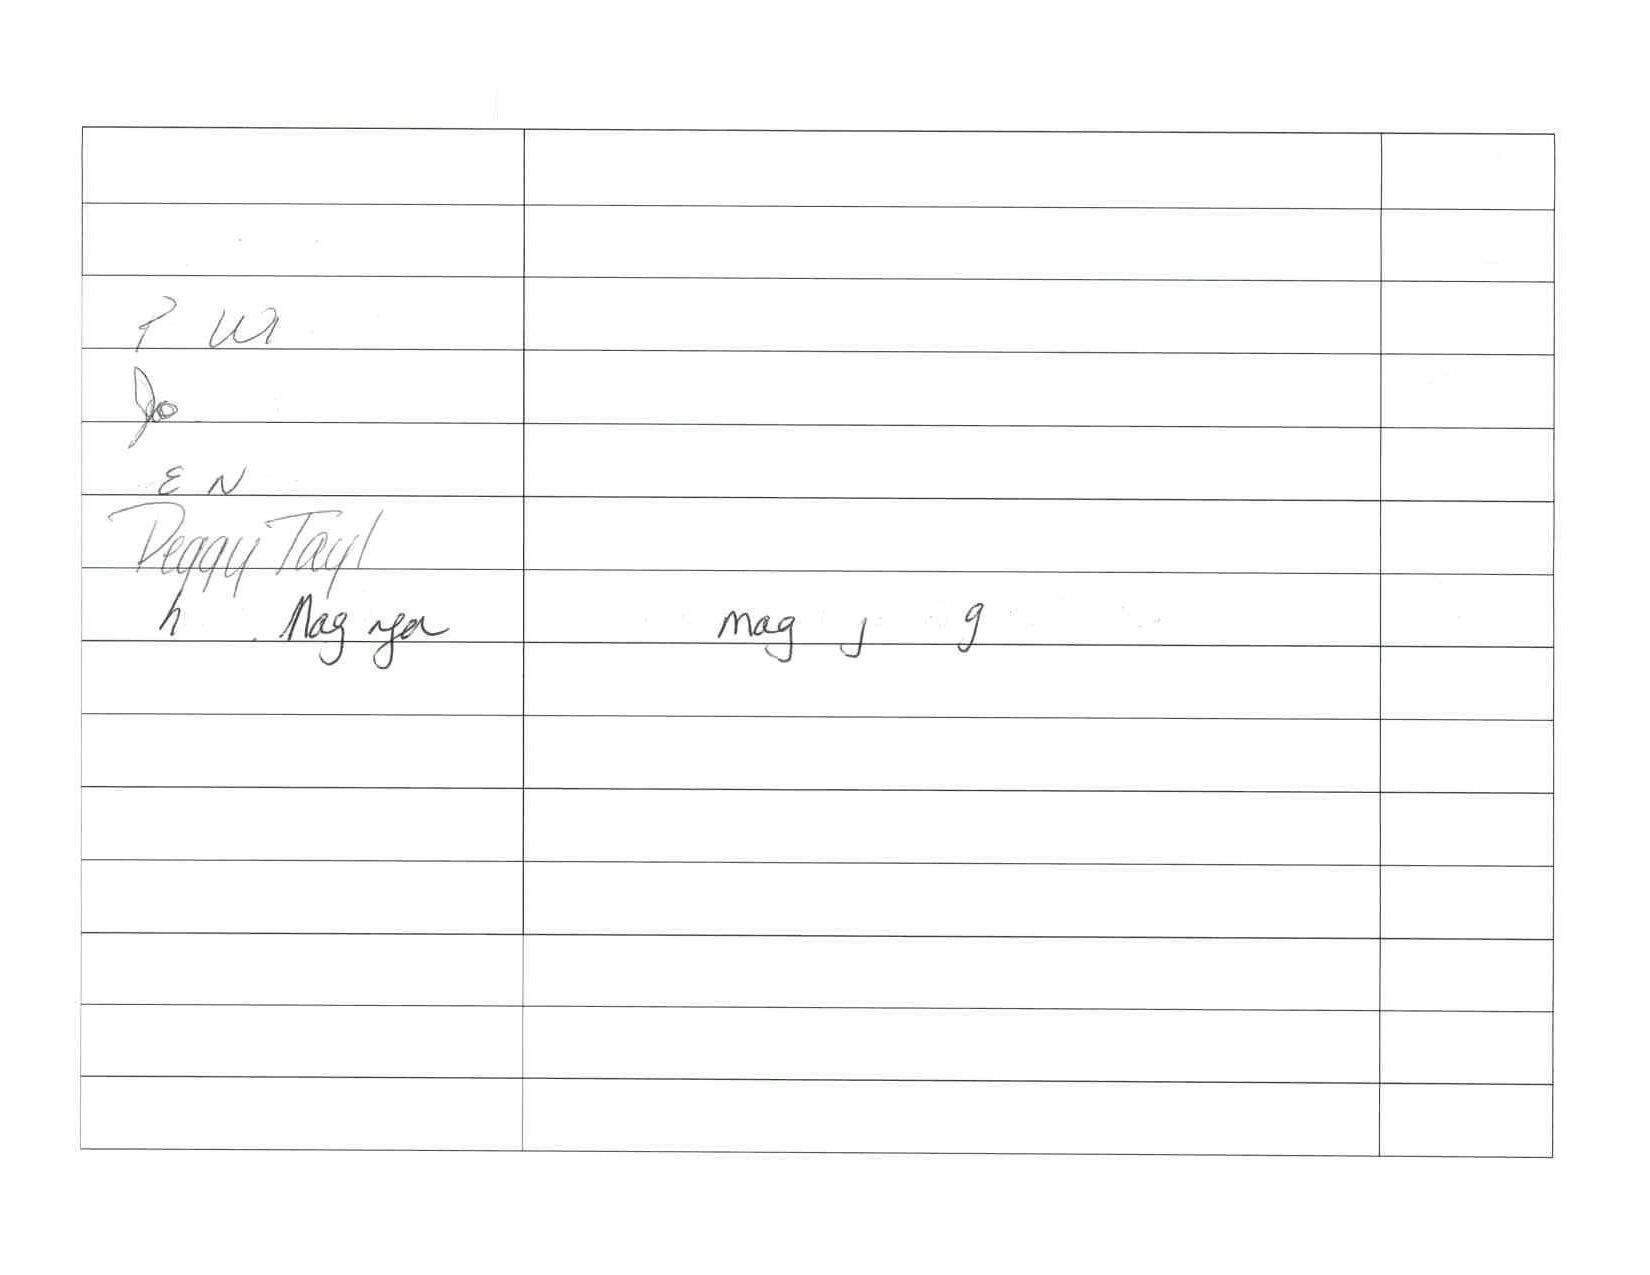 P Wi
Jo
E N
Peggy Tayl
h Nag yor mag j g